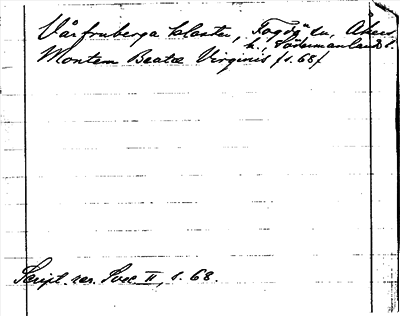 Vårfruberga kloster, Fogdö sn, Åkers
h., Södermanland s.
Montem Beatæ Virginis /s. 68/
Script. rer. Svec II, s. 68.